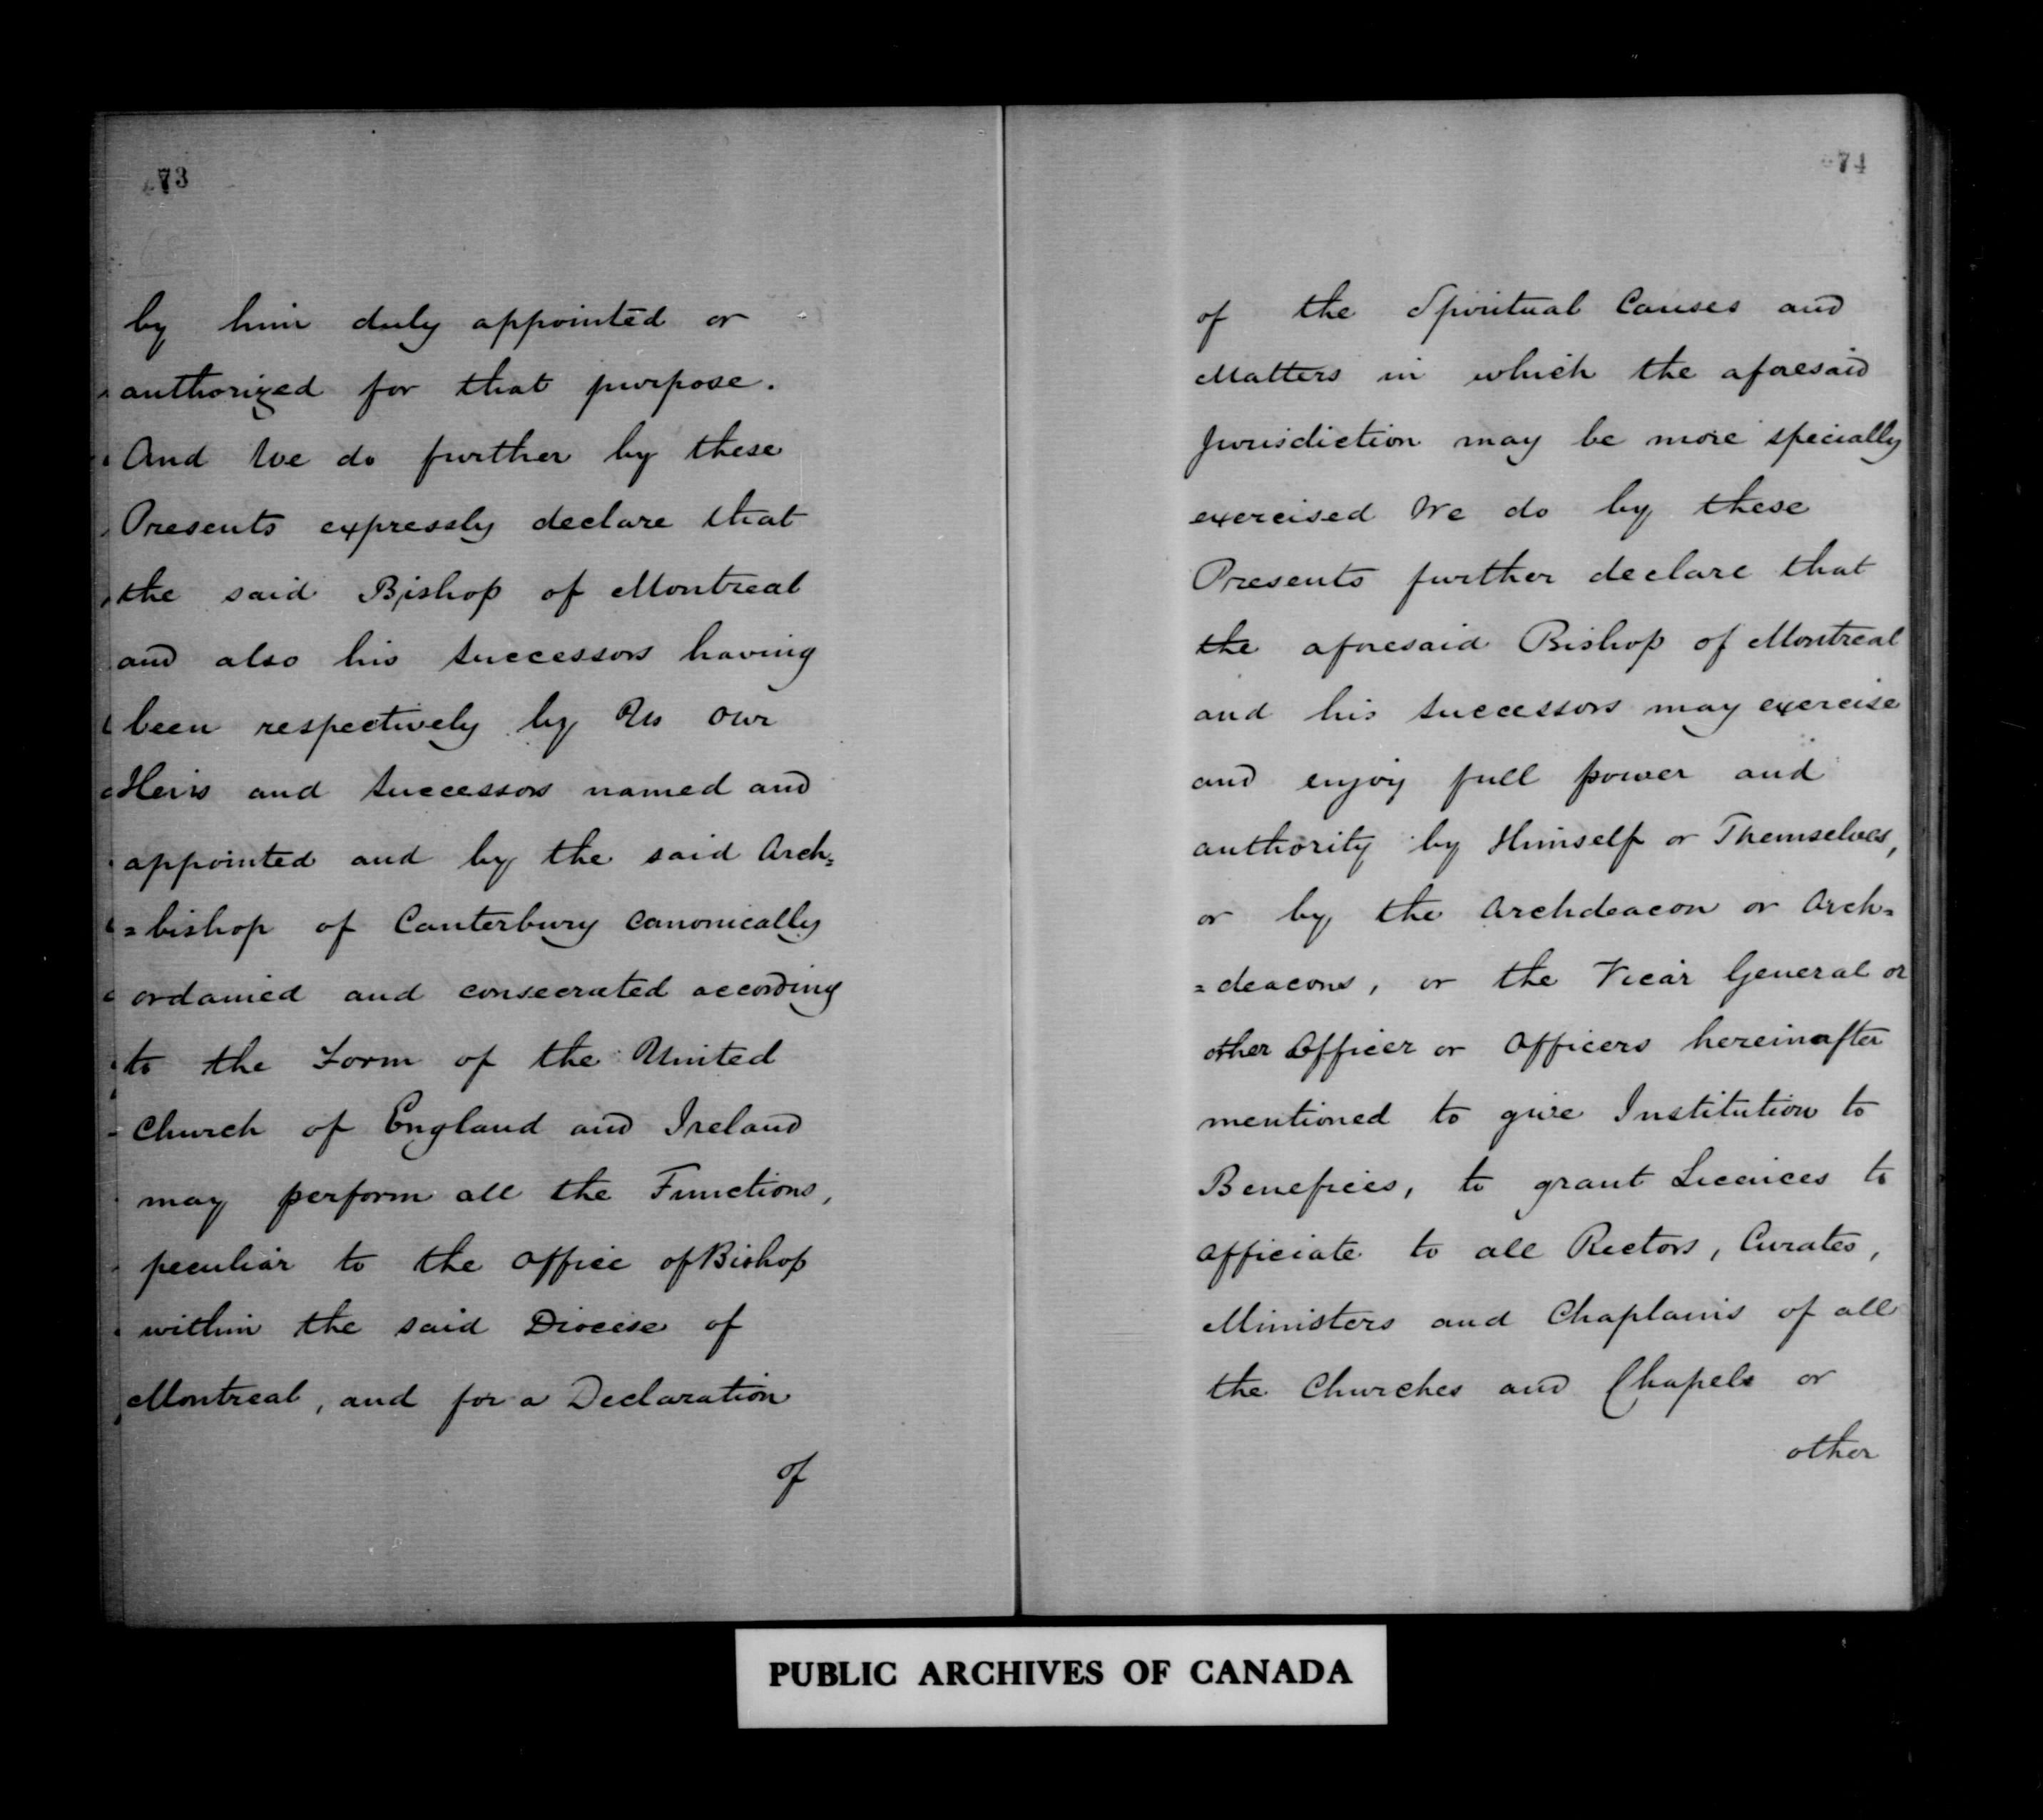 73
by him duly appointed or
authorized for that purpose.
And We do further by these
Presents expressly declare that
the said Bishop of Montreal
and also his Successors having
been respectively by Us our
Heirs and Successors named and
appointed and by the said Arch=
=bishop of Canterbury canonically
ordained and consecrated according
to the Form of the United
Church of England and Ireland
may perform all the Functions,
peculiar to the Office of Bishop
within the said Diocese of
Montreal, and for a Declaration
of
74
of the Spiritual Causes and
Matters in which the aforesaid
Jurisdiction may be more specially
exercised We do by these
Presents further declare that
the aforesaid Bishop of Montreal
and his Successors may exercise
and enjoy full power and
authority by Himself or Themselves,
or by the Archdeacon or Arch=
=deacons, or the Vicar General or
other Officer or Officers hereinafter
mentioned to give Institution to
Benefices, to grant Licences to
officiate to all Rectors, Curates,
Ministers and Chaplains of all
the Churches and Chapels or
other
PUBLIC ARCHIVES OF CANADA